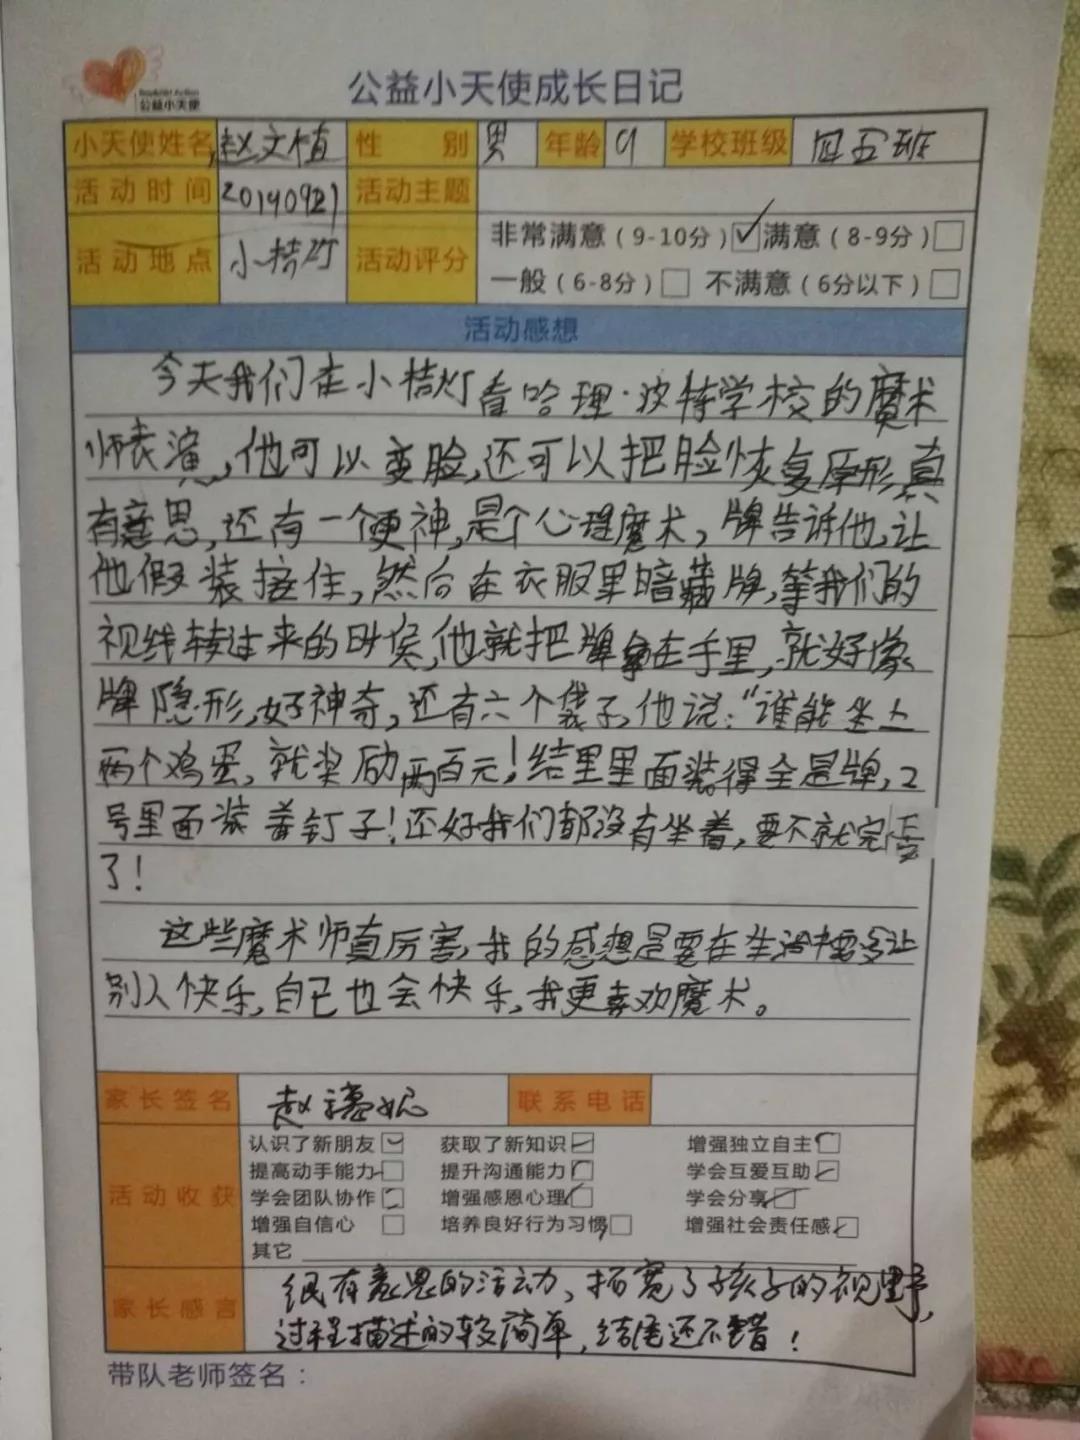 公益小天使
公益小天使成长日记
小天使姓名 赵文植 性别 男 年龄 9 学校班级 四五班
活动时间 20140921 活动主题
活动地点 小桔灯 活动评分 非常满意（9-10分）☑ 满意（8-9分）□
一般（6-8分）□ 不满意（6分以下）□
活动感想
今天我们在小桔灯看哈理·波特学校的魔术
师表演，他可以变脸，还可以把脸恢复原形，真
有意思，还有一个更神，是个心理魔术，牌告诉他，让
他假装接住，然后在衣服里暗藏牌，等我们的
视线转过来的时候，他就把牌拿在手里，就好像
牌隐形，好神奇，还有六个袋子，他说：“谁能坐上
两个鸡蛋，就奖励两百元！结里里面装得全是牌，2
号里面装着钉子！还好我们都没有坐着，要不就完蛋
了！
这些魔术师真厉害，我的感想是要在生活中要多让
别人快乐，自己也会快乐，我更喜欢魔术。
家长签名 赵 妮 联系电话
活动收获
认识了新朋友 获取了新知识 增强独立自主
提高动手能力 提升沟通能力 学会互爱互助
学会团队协作 增强感恩心理 学会分享
增强自信心 培养良好行为习惯 增强社会责任感
其它
家长感言 很有意思的活动、拓宽了孩子的视野，
过程描述的较简单，结尾还不错！
带队老师签名：